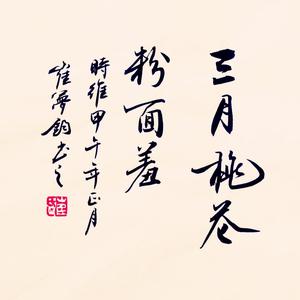 三月桃花
粉面羞
時維甲午年正月
崔夢鈞书之
崔